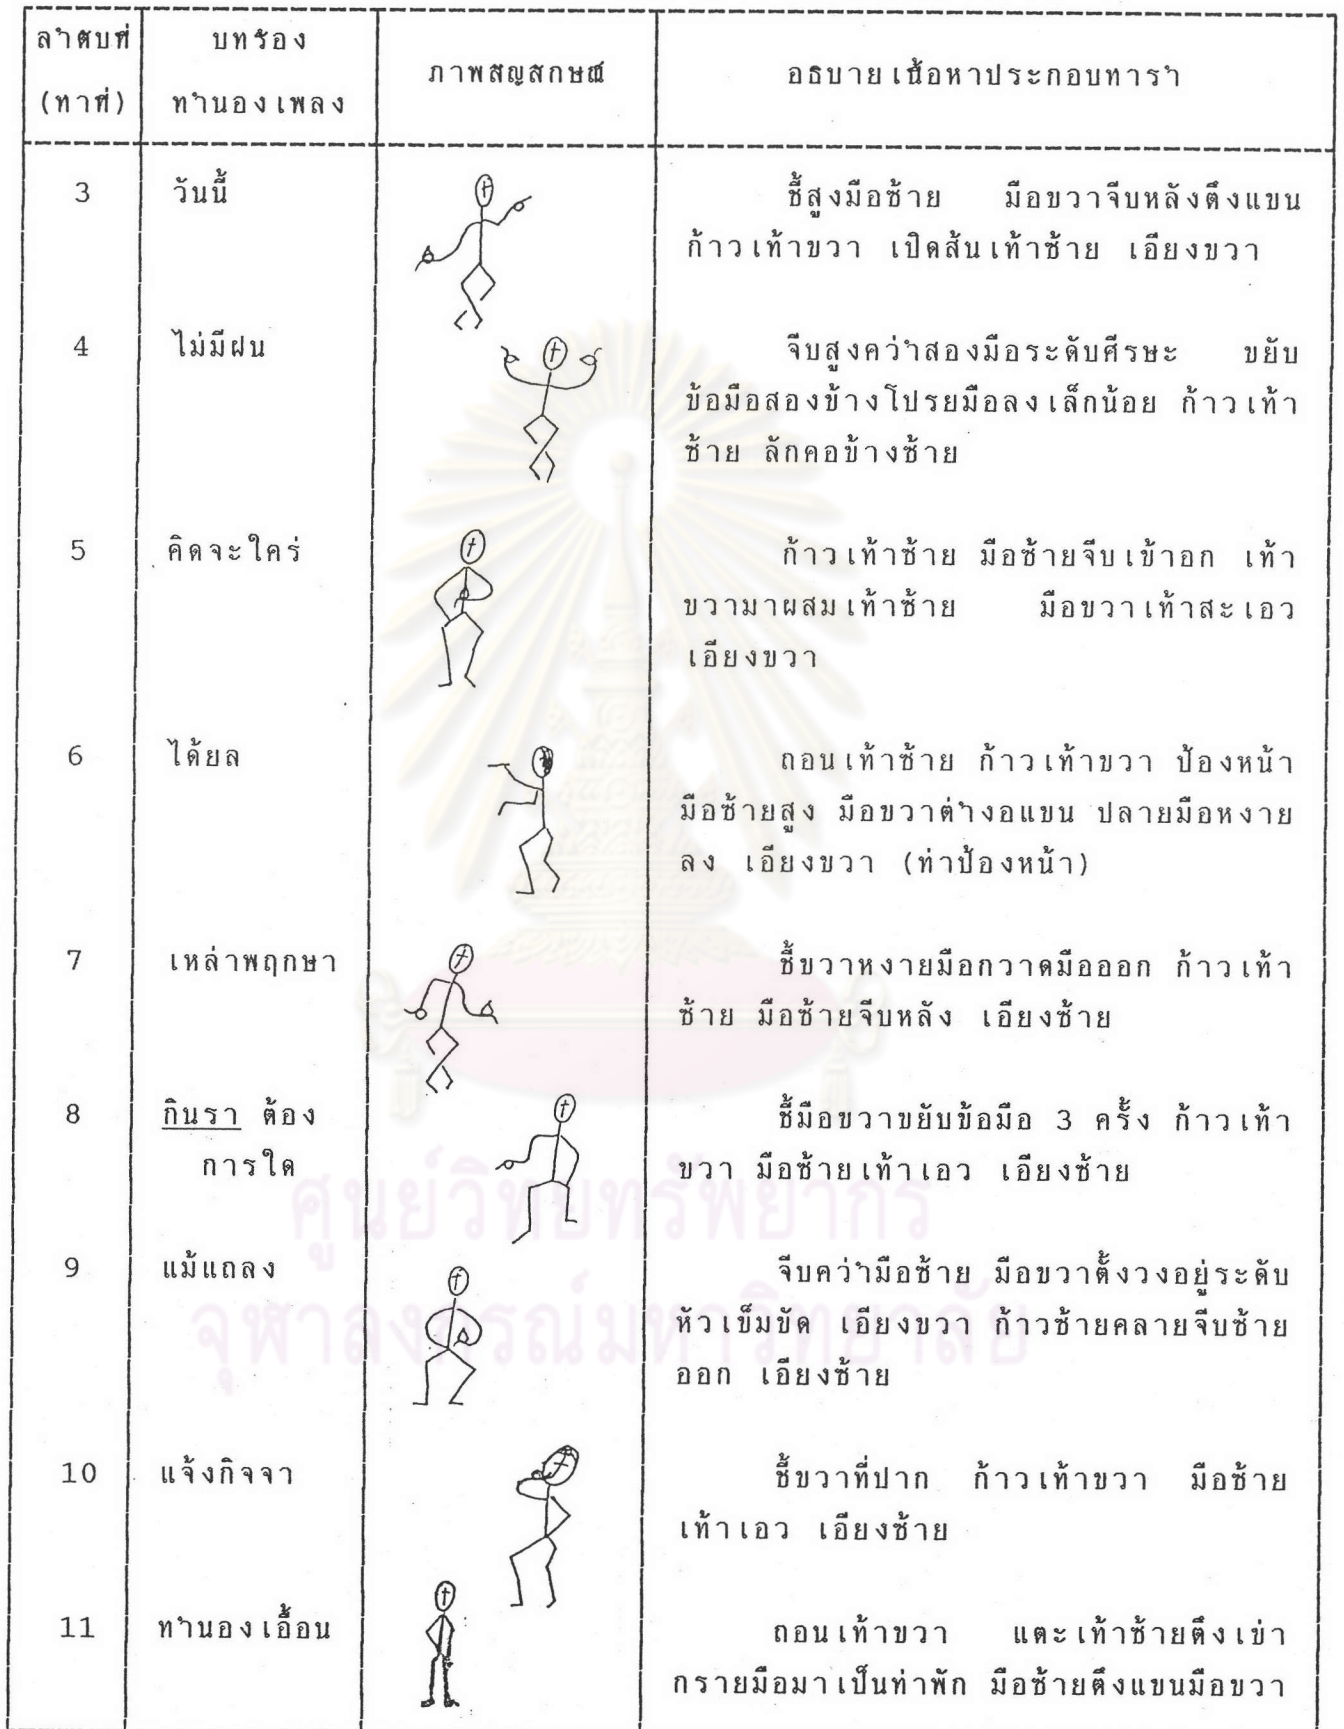 ลำดับที่ บทร้อง ภาพสัญลักษณ์ อธิบายเนื้อหาประกอบท่ารำ
(ท่าที่) ทำนองเพลง
3 วันนี้ ชี้สูงมือซ้าย มือขวาจีบหลังตึงแขน
ก้าวเท้าขวา เปิดส้นเท้าซ้าย เอียงขวา
4 ไม่มีฝน จีบสูงคว่ำสองมือระดับศีรษะ ขยับ
ข้อมือสองข้างโปรยมือลงเล็กน้อย ก้าวเท้า
ซ้าย ลักคอข้างซ้าย
5 คิดจะใคร่ ก้าวเท้าซ้าย มือซ้ายจีบเข้าอก เท้า
ขวามาผสมเท้าซ้าย มือขวาเท้าสะเอว
เอียงขวา
6 ได้ยล ถอนเท้าซ้าย ก้าวเท้าขวา ป้องหน้า
มือซ้ายสูง มือขวาต่ำงอแขน ปลายมือหงาย
ลง เอียงขวา (ท่าป้องหน้า)
7 เหล่าพฤกษา ชี้ขวาหงายมือกวาดมือออก ก้าวเท้า
ซ้าย มือซ้ายจีบหลัง เอียงซ้าย
8 กินรา ต้อง ชี้มือขวาขยับข้อมือ 3 ครั้ง ก้าวเท้า
การใด ขวา มือซ้ายเท้าเอว เอียงซ้าย
9 แม้แถลง จีบคว่ำมือซ้าย มือขวาตั้งวงอยู่ระดับ
หัวเข็มขัด เอียงขวา ก้าวซ้ายคลายจีบซ้าย
ออก เอียงซ้าย
10 แจ้งกิจจา ชี้ขวาที่ปาก ก้าวเท้าขวา มือซ้าย
เท้าเอว เอียงซ้าย
11 ทำนองเอื้อน ถอนเท้าขวา แตะเท้าซ้ายตึงเข่า
กรายมือมาเป็นท่าพัก มือซ้ายตึงแขนมือขวา
ศูนย์วิทยทรัพยากร
จุฬาลงกรณ์มหาวิทยาลัย